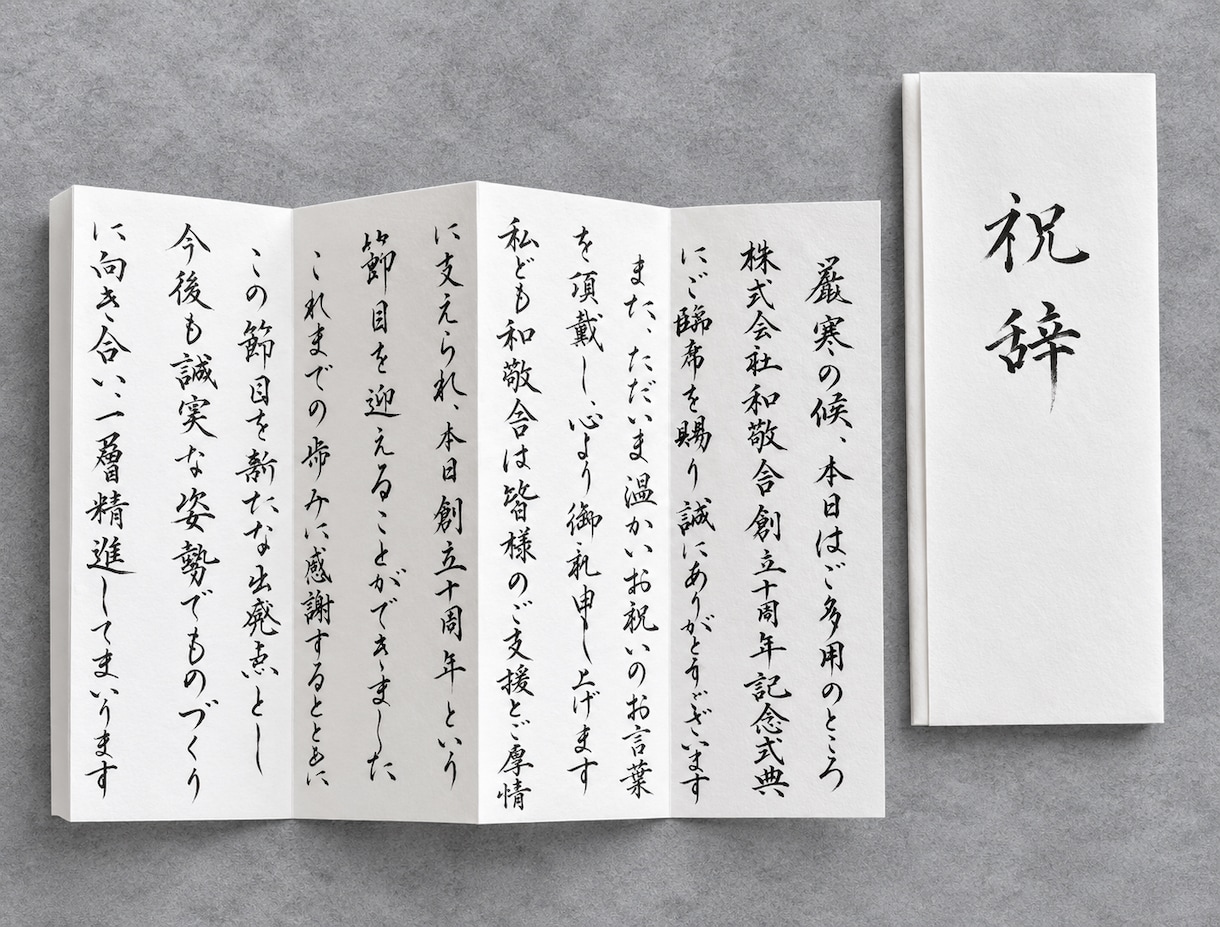 祝辞
厳寒の候、本日はご多用のところ
株式会社和敬舎創立十周年記念式典
にご臨席を賜り誠にありがとうございます
また、ただいま温かいお祝いのお言葉
を頂戴し、心より御礼申し上げます
私ども和敬舎は皆様のご支援とご厚情
に支えられ、本日創立十周年という
節目を迎えることができました
これまでの歩みに感謝するとともに
この節目を新たな出発点とし
今後も誠実な姿勢でものづくり
に向き合い、一層精進してまいります